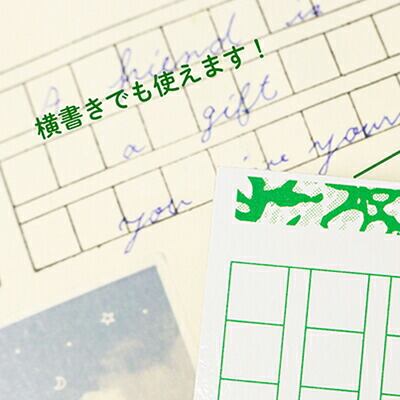 A friend is
横書きでも使えます！
a gift
you give your